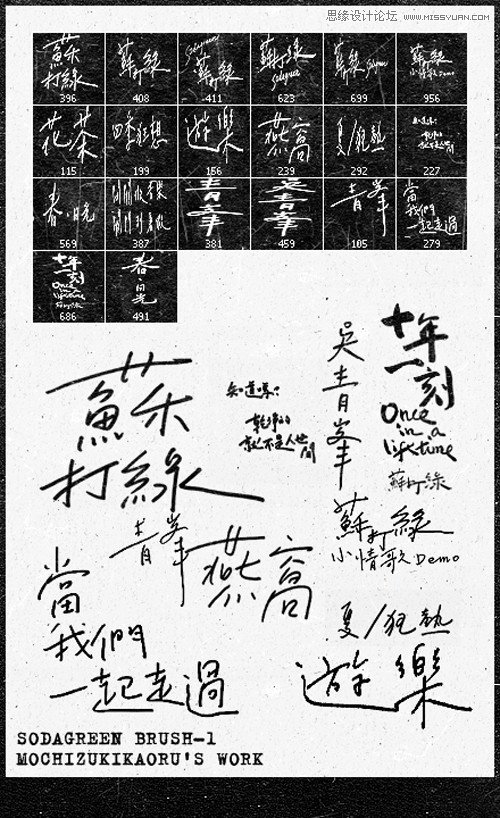 思缘设计论坛 WWW.MISSYUAN.COM
蘇
打綠
396
蘇打綠
408
Sodagreen
蘇打綠
411
蘇打綠
Sodagreen
623
蘇打綠
Sodagreen
699
蘇打綠
小情歌Demo
956
花茶
115
四季狂想
199
遊樂
156
燕窩
239
夏/狂熱
292
227
春·日光
569
387
青峯
381
吳青峯
459
青峯
105
當
我們
一起走過
279
十年
一刻
Once
in a
lifetime
686
春·日光
491
蘇
打綠
知道嗎?
乾淨的
就不是人世
間
吳青峯
十年
一刻
Once
in a
lifetime
蘇打綠
青峯
燕窩
蘇打綠
小情歌Demo
當
我們
一起走過
夏/狂熱
遊樂
SODAGREEN BRUSH-1
MOCHIZUKIKAORU'S WORK